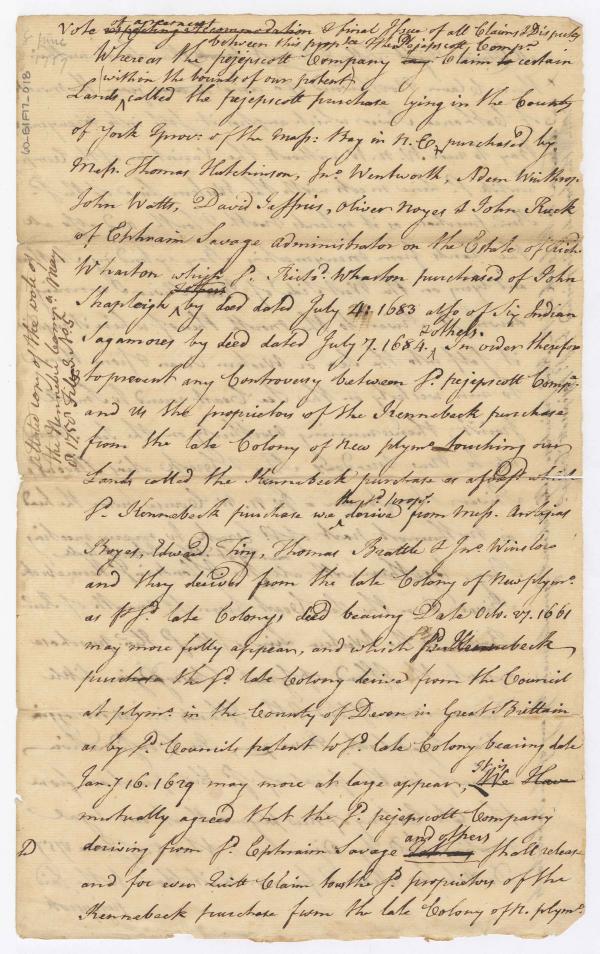 Vote of agreement accommodation & final Issue of all Claims & Disputes
between this prop.rs & the Pejepscott Comp.a
Whereas the pejepscott Company Claim to certain
within the bounds of our patent
Lands called the pejepscott purchase lying in the County
of York & prov. of the Mass: Bay in N. E, purchased by
Mess. Thomas Hutchinson, Jn.o Wentworth, Adam Winthrop
John Watts, David Jaffries, Oliver Noyes & John Ruck
of Ephraim Savage administrator on the Estate of Rich.
Wharton which s.d Rich.d Wharton purchased of John
Shapleigh & others by deed dated July 4. 1683 also of Six Indian
Sagamores by deed dated July 7. 1684. & others. In order therefore
to prevent any Controversy between s.d pejepscott Comp.a
and us the proprietors of the Kennebeck purchase
from the late Colony of New plym.o touching our
Lands called the Kennebeck purchase as afores.d which
s.d Kennebeck purchase we the s.d prop.rs derived from Mess. Antipas
Boyes, Edward Ting, Thomas Brattle & Jn.o Winslow
and they derived from the late Colony of New plym.o
as p.r s.d late Colonys deed bearing Date Octo. 27. 1661
may more fully appear, and which s.d Kennebeck
purchase the s.d late Colony derived from the Council
at plym.o in the County of Devon in Great Brittain
as by s.d Councils patent to s.d late Colony bearing date
Jan.y 16. 1629 may more at large appear, It is We Have
mutually agreed that the s.d pejepscott Company
deriving from s.d Ephraim Savage and others shall release
and for ever Quitt Claim to us the s.d proprietors of the
Kennebeck purchase from the late Colony of N. plym.o
8 June
60-G1F17-018
attested copy of the vote of
the Kennebec Comp.a May